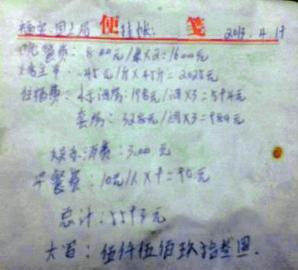 便 笺
2013.4.19
晚餐费：800元/桌×2=1600元
45元/斤×45斤=2025元
住宿费：198元/间×3=594元
套房：328元/间×3=984元
娱乐消费：300元
早餐费：10元/人×9=90元
总计：5593元
大写：伍仟伍佰玖拾叁圆.